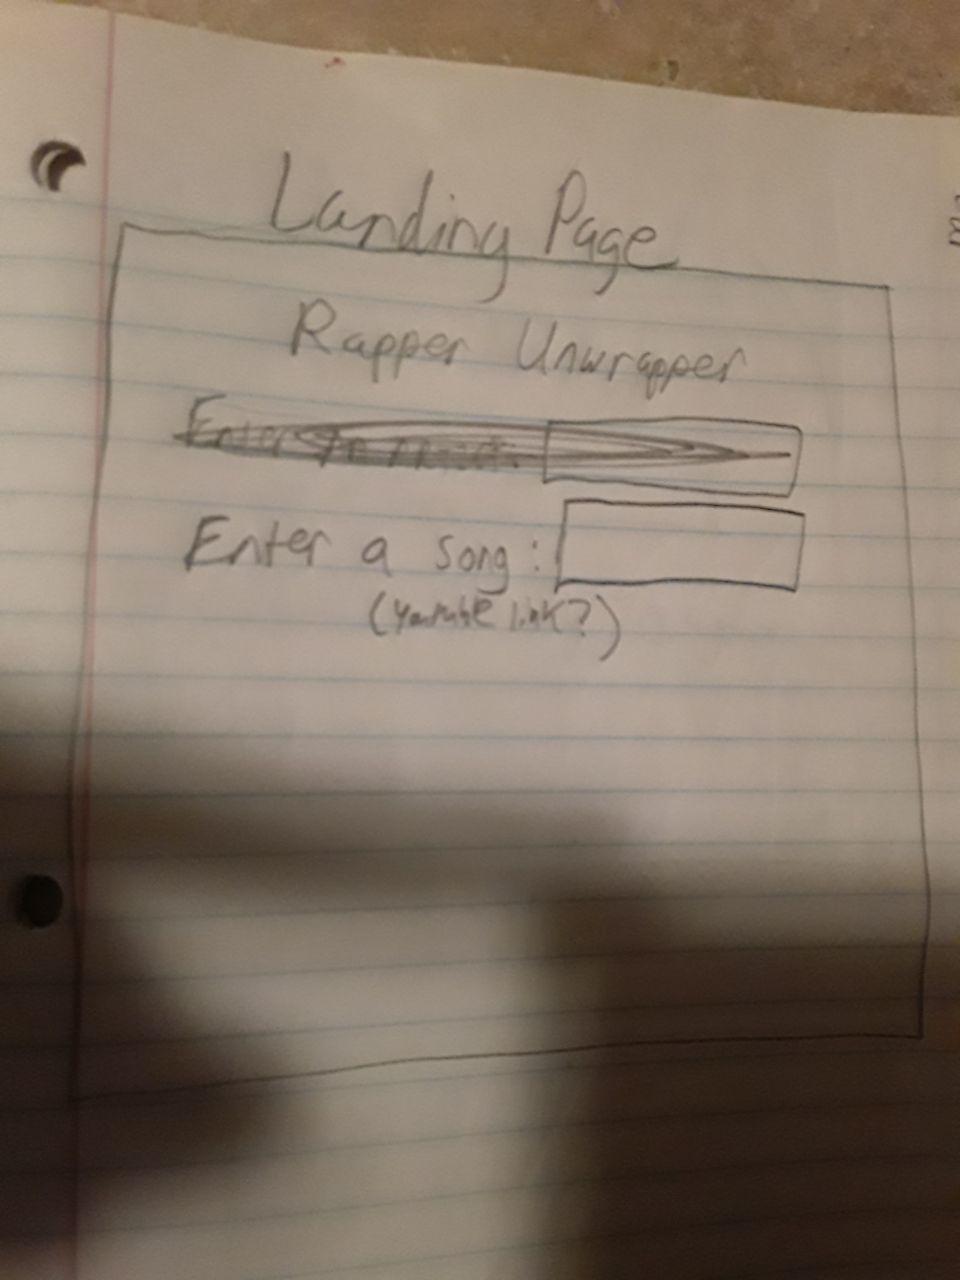 Landing Page
Rapper Unwrapper
Enter
Enter a song:
(Youtube link?)